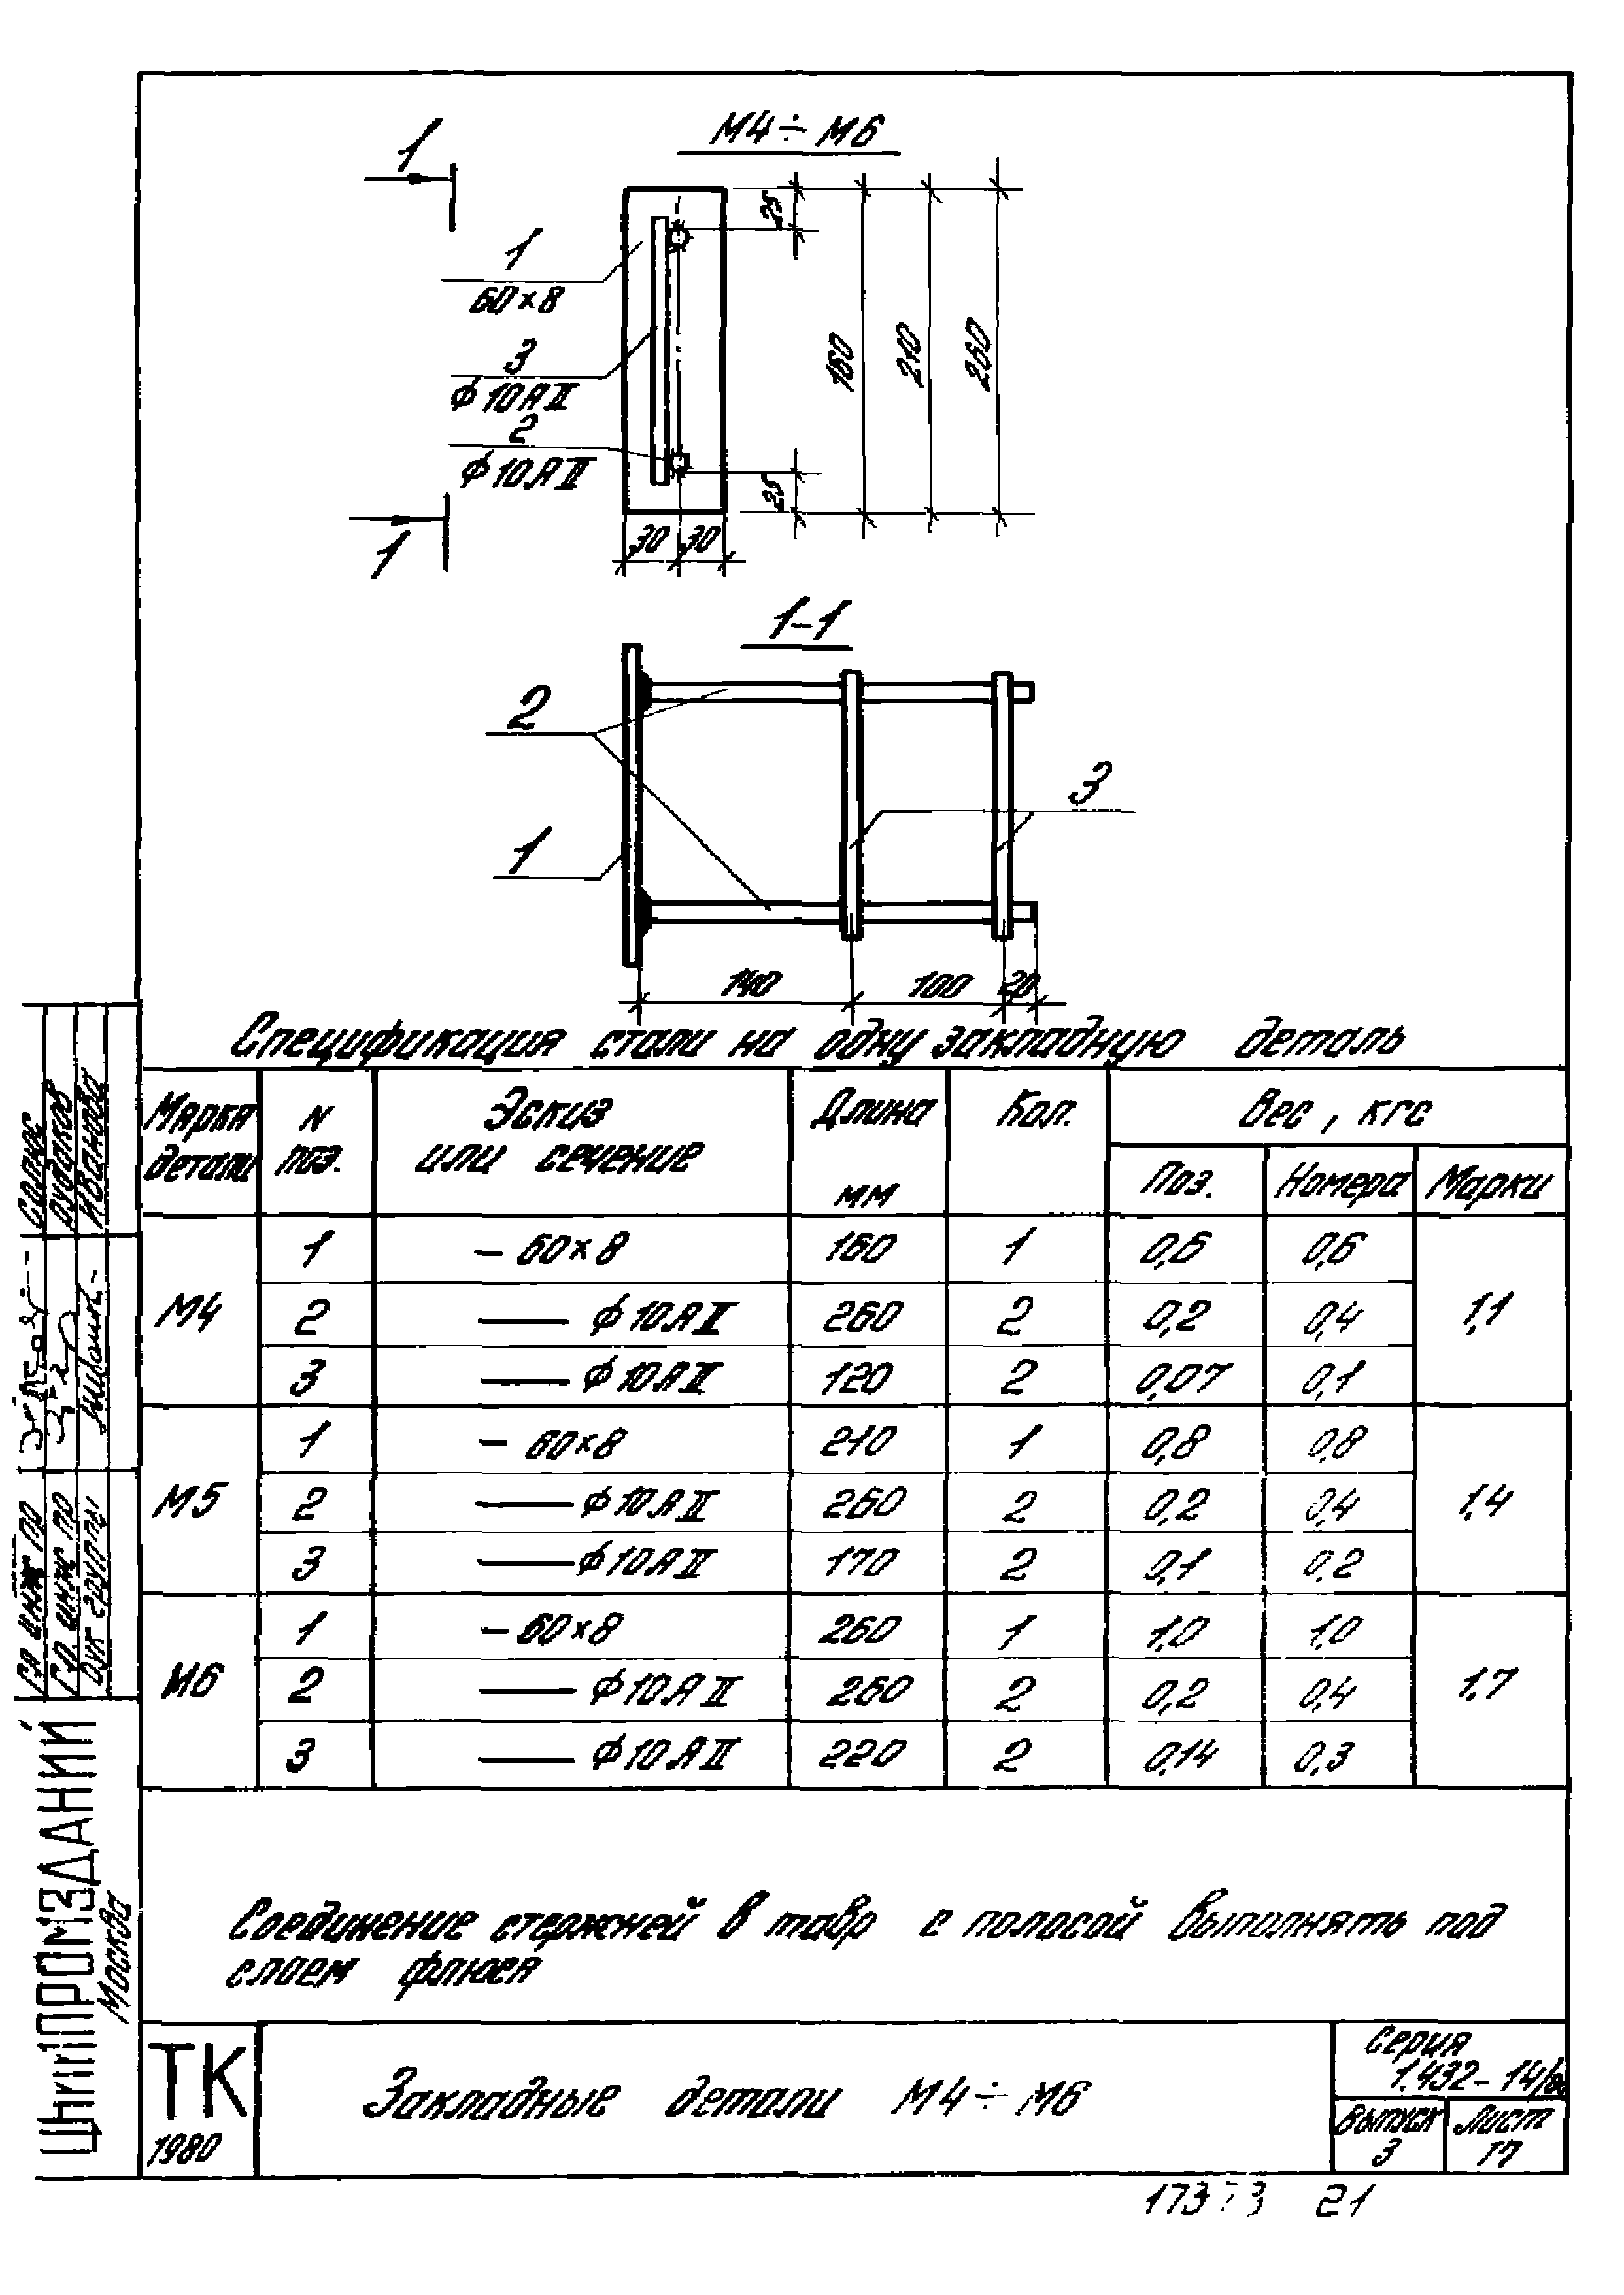 М4÷М6
1
25
1
60×8
160
210
260
3
ф10АII
2
ф10АII
25
1
30 30
1-1
2
3
1
140 100 20
Спецификация стали на одну закладную деталь
Марка детали N поз. Эскиз или сечение Длина мм Кол. Вес, кгс
Поз. Номера Марки
М4 1 – 60×8 160 1 0,6 0,6 1,1
2 — ф10АII 260 2 0,2 0,4
3 — ф10АII 120 2 0,07 0,1
М5 1 – 60×8 210 1 0,8 0,8 1,4
2 — ф10АII 260 2 0,2 0,4
3 — ф10АII 170 2 0,1 0,2
И6 1 – 60×8 260 1 1,0 1,0 1,7
2 — ф10АII 260 2 0,2 0,4
3 — ф10АII 220 2 0,14 0,3
Соединение стержней в тавр с полосой выполнять под
слоем флюся
ТК
1980
Закладные детали М4÷М6
Серия
1.432-14/80
Выпуск
3
Лист
17
21
Рудаков
Иванова
инж ПО
инж ПО
рук группы
ЦНИИПРОМЗДАНИЙ
Москва